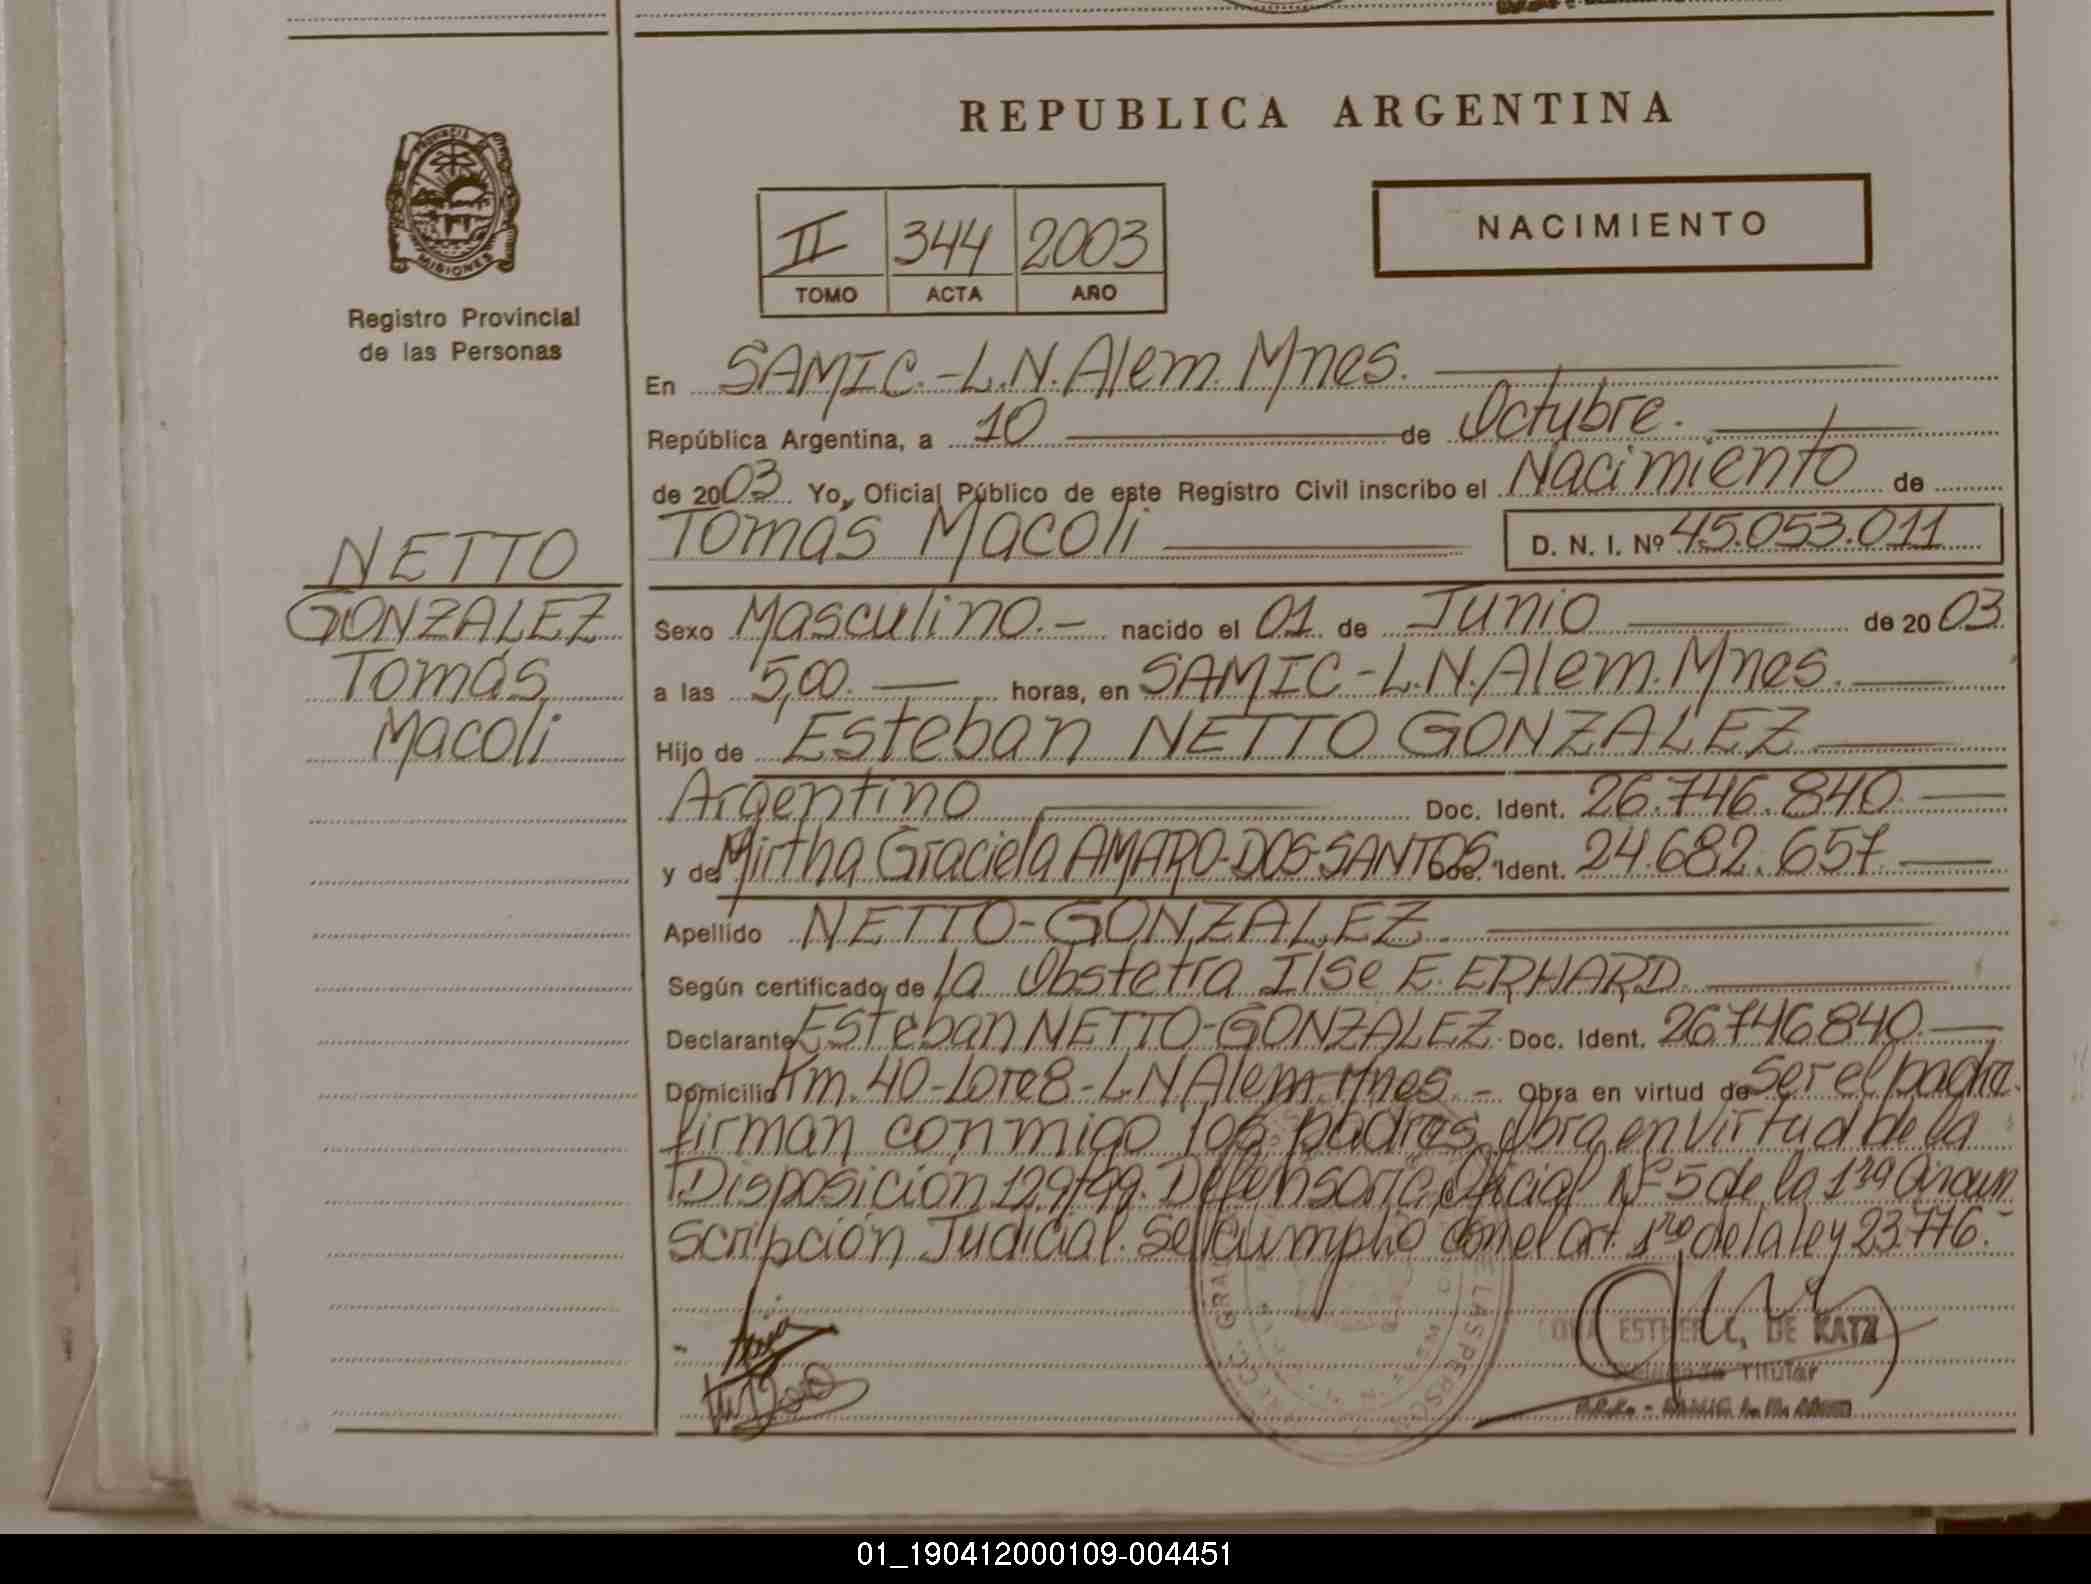 REPUBLICA ARGENTINA
PROVINCIA
MISIONES
Registro Provincial
de las Personas
II 344 2003
TOMO ACTA AÑO
NACIMIENTO
En SAMIC.-L.N.Alem.Mnes.
República Argentina, a 10 de Octubre.
de 2003 Yo, Oficial Público de este Registro Civil inscribo el Nacimiento de
Tomás Macoli D. N. I. Nº 45.053.011
NETTO
GONZALEZ
Tomás
Macoli
Sexo Masculino.- nacido el 01 de Junio de 2003
a las 5,00. horas, en SAMIC-L.N.Alem.Mnes.
Hijo de Esteban NETTO GONZALEZ
Argentino Doc. Ident. 26.746.840
y de Mirtha Graciela AMARO-DOS-SANTOS Doc. Ident. 24.682.657
Apellido NETTO-GONZALEZ
Según certificado de la Obstetra Ilse E. ERHARD
Declarante Esteban NETTO-GONZALEZ. Doc. Ident. 26746840.
Domicilio Km.40-Lote8-L.N.Alem.Mnes.- Obra en virtud de Ser el padre.
firman conmigo los padres, obra en virtud de la
Disposición 129/99. Defensoría Oficial Nº5 de la 1ra Circun
scripción Judicial. Se cumplió con el art 1ro de la ley 23.776.-
ESTHER DE KATZ
Titular
01_190412000109-004451